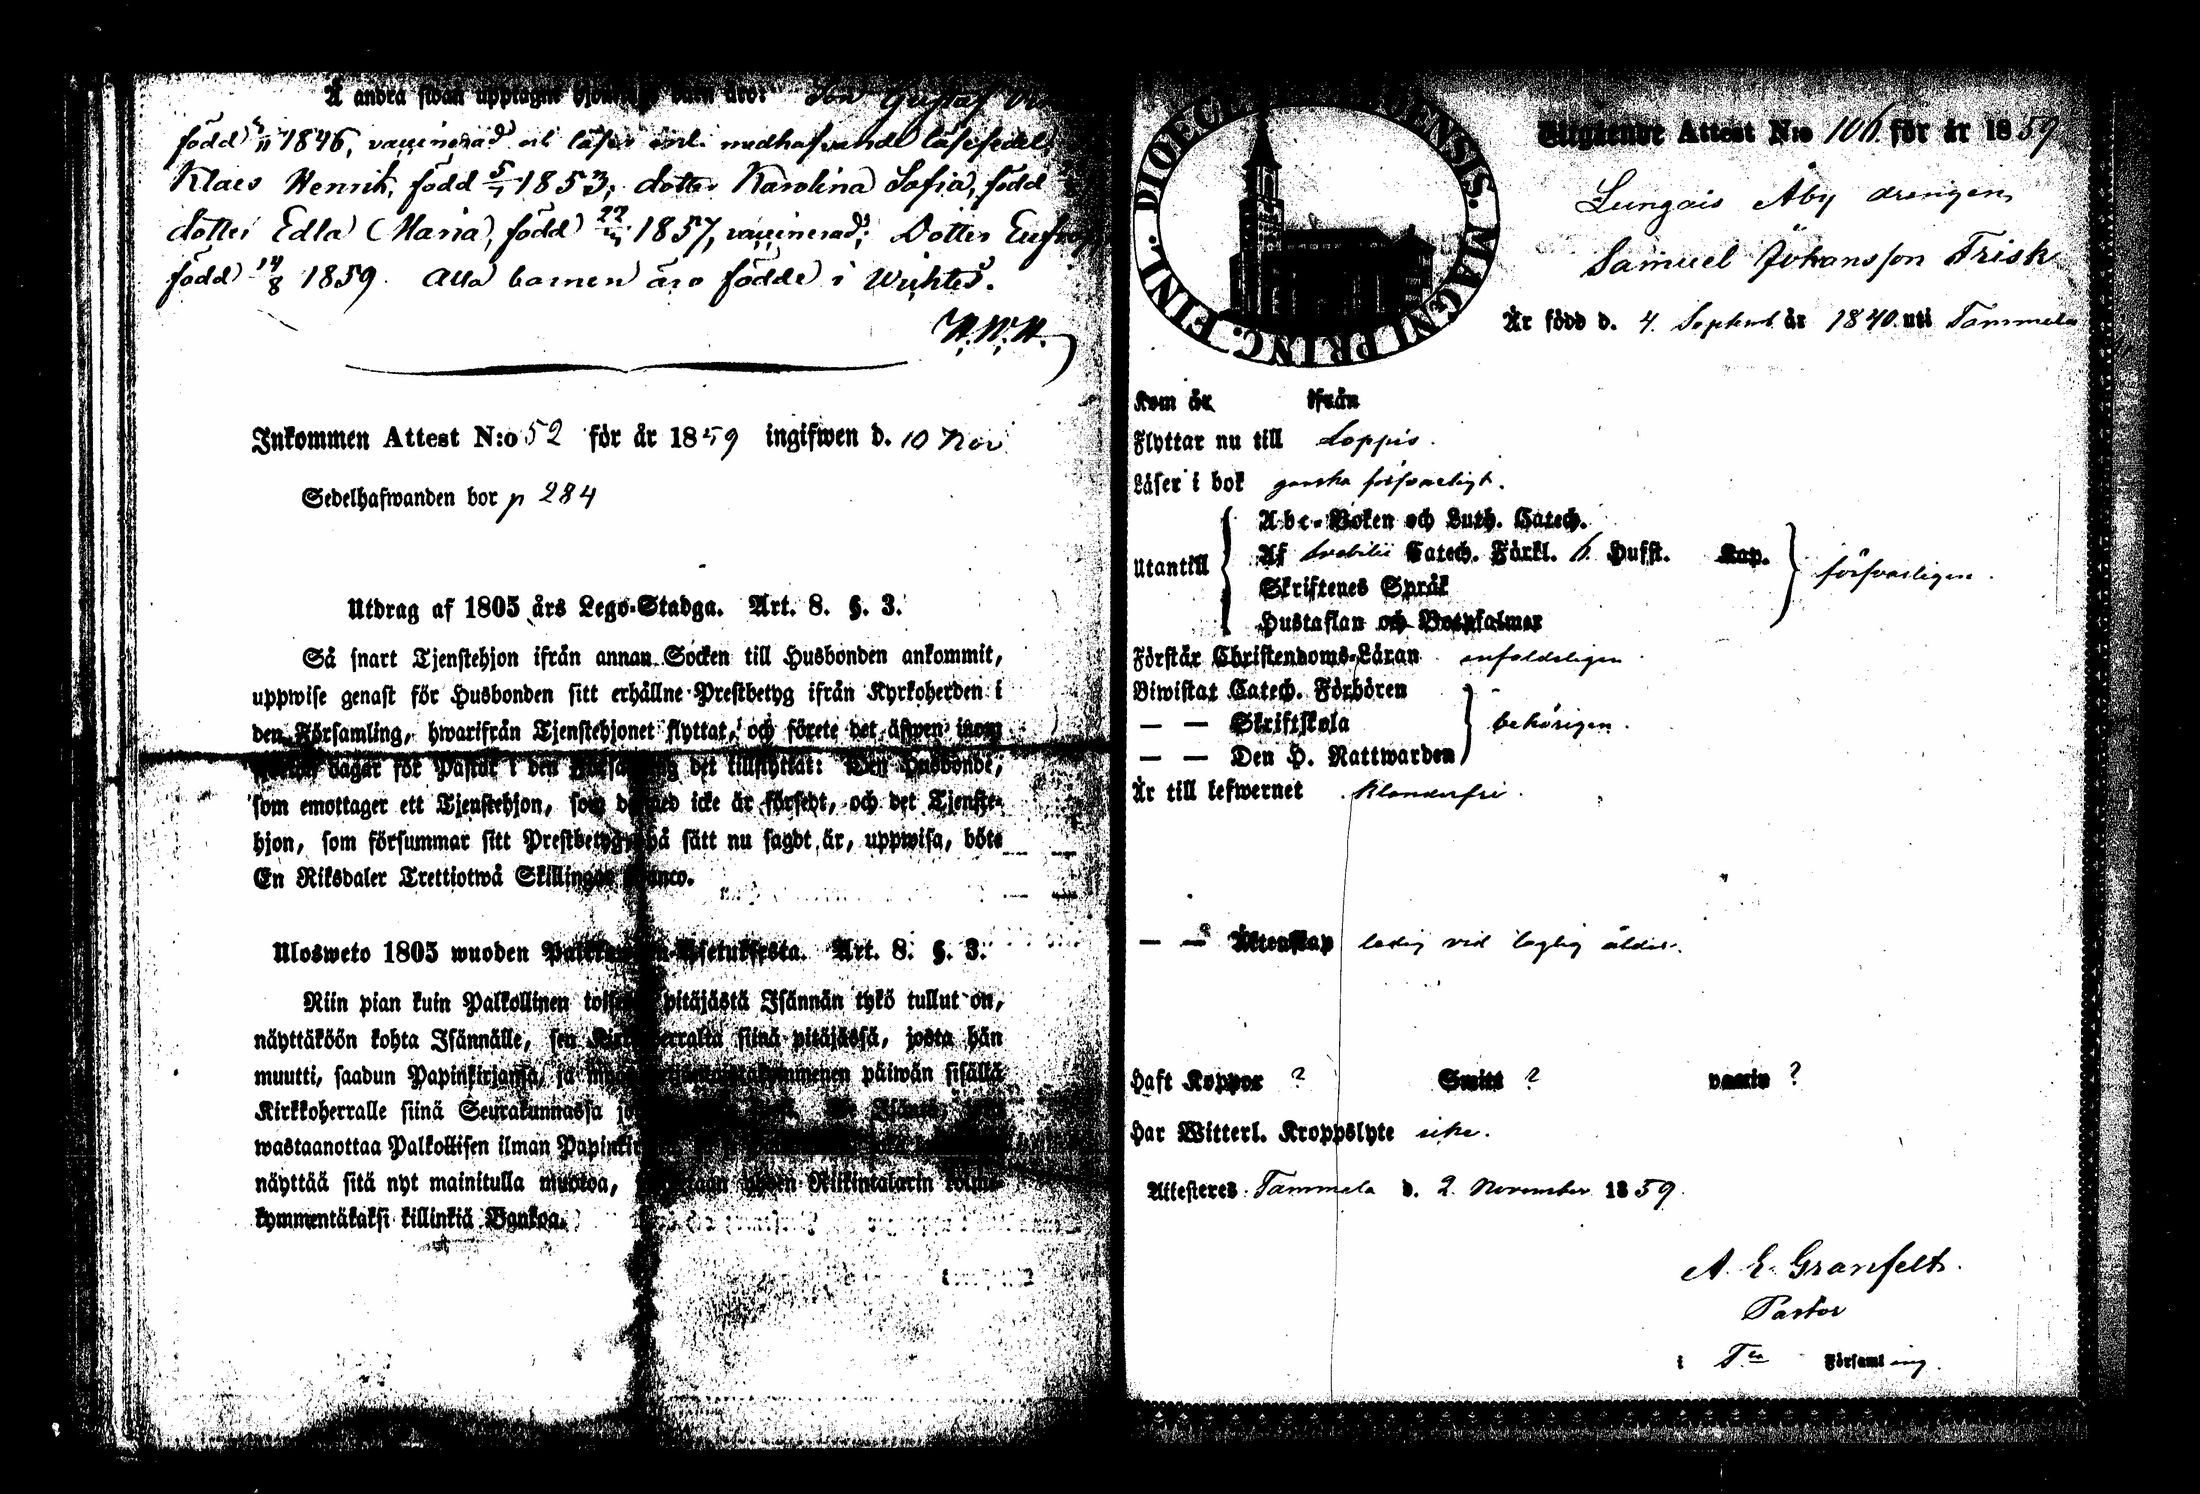 Å andra sidan upptagne hjons barn äro: Son Gustaf
född 1846, vaccinerad och läser enl. medhafvande läsesedel,
Klaes Henrik, född 5/7 1853, dotter Karolina Sofia, född
dotter Edla Maria, född 1857, vaccinerad; Dotter
född 14/8 1859. Alla barnen äro födde i Wichtis.
Inkommen Attest N:o 52 för år 1859 ingifwen d. 10 Nov
Sedelhafwanden bor p 284
Utdrag af 1805 års Lego-Stadga. Art. 8. §. 3.
Så snart Tjenstehjon ifrån annan Socken till Husbonden ankommit,
uppwise genast för Husbonden sitt erhållne Prestbetyg ifrån Kyrkoherden i
den Församling, hwarifrån Tjenstehjonet flyttat, och förete det äfwen inom
dagar för Pastor i den det tillflyttat: Den Husbonde,
som emottager ett Tjenstehjon, som dermed icke är försedt, och det Tjenste-
hjon, som försummar sitt Prestbetyg, på sätt nu sagdt är, uppwisa, böte
En Riksdaler Trettiotwå Skillingar Banco.
Ulosweto 1805 wuoden Art. 8. §. 3.
Niin pian kuin Palkollinen toisesta pitäjästä Isännän tykö tullut on,
näyttäköön kohta Isännälle, sen Kirkkoherralta siinä pitäjässä, josta hän
muutti, saadun Papinkirjansa, ja päiwän sisällä
Kirkkoherralle siinä Seurakunnassa
wastaanottaa Palkollisen ilman
näyttää sitä nyt mainitulla muotoa, Riikintalarin kolme-
kymmentäkaksi killinkiä Bankoa.
DIOECE ENSIS. MAGNI PRINC. FINL.
Utgående Attest N:o för år 1859
Äby drengen
Samuel Johansson Frisk
Är född d. 4 Septemb. år 1840 uti Tammela
Kom år ifrån
Flyttar nu till Loppis.
Läser i bok ganska försvarligt.
Utantill
Abc-Boken och Luth. Catech.
Af Svebilii Catech. Förkl. h. Hufst. Kap.
Skriftenes Språk
Hustaflan och Botpsalmer
försvarligen.
Förstår Christendoms-Läran enfaldeligen
Biwistat Catech. Förhören
— — Skriftskola
— — Den H. Nattwarden
behörigen.
Är till lefwernet klanderfri.
— — Äktenskap ledig vid laglig ålder.
Haft Koppor ? Smitt ? vaccin ?
Har Witterl. Kroppslyte icke.
Attesteres Tammela d. 2 November 1859.
A. E. Granfelt.
Pastor
i Församling.